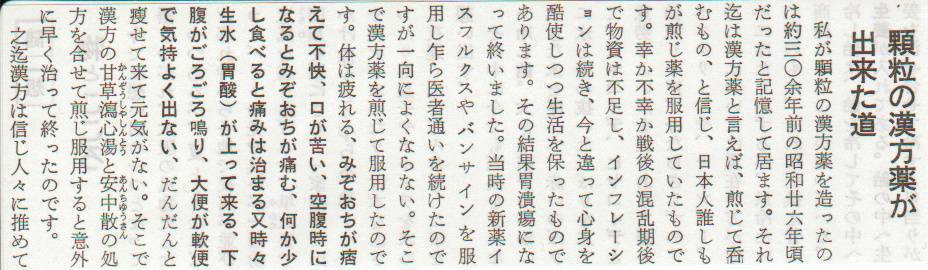 顆粒の漢方薬が
出来た道
私が顆粒の漢方薬を造ったの
は約三〇余年前の昭和廿六年頃
だったと記憶して居ます。それ
迄は漢方薬と言えば、煎じて呑
むもの、と信じ、日本人誰しも
が煎じ薬を服用していたもので
す。幸か不幸か戦後の混乱期後
で物資は不足し、インフレーシ
ョンは続き、今と違って心身を
酷使しつつ生活を保ったもので
あります。その結果胃潰瘍にな
って終いました。当時の新薬イ
スフルクスやバンサインを服
用し乍ら医者通いを続けたので
すが一向によくならない。そこ
で漢方薬を煎じて服用したので
す。体は疲れる、みぞおちが痞
えて不快、口が苦い、空腹時に
なるとみぞおちが痛む、何か少
し食べると痛みは治まる又時々
生水（胃酸）が上って来る、下
腹がごろごろ鳴り、大便が軟便
で気持よく出ない、だんだんと
痩せて来て元気がない。そこで
漢方の甘草瀉心湯と安中散の処
かんぞうしやしんとう
あんちゆうさん
方を合せて煎じ服用すると意外
に早く治って終ったのです。
之迄漢方は信じ人々に推めて